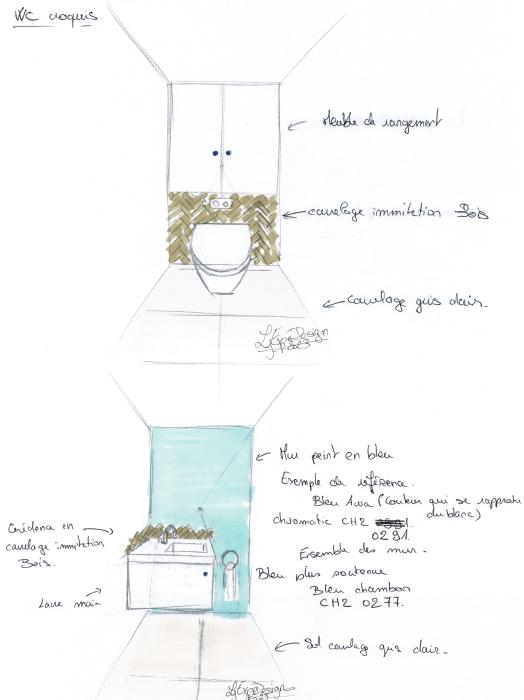 WC croquis
Meuble de rangement
carrelage immitation Bois
Carrelage gris clair.
Mur peint en bleu
Exemple de référence.
Bleu Awa (Couleur qui se rapproche
du blanc)
chromatic CH2
0291.
Ensemble des mur.
Bleu plus soutenue
Bleu chambon
CH2 0277.
Crédence en
carrelage immitation
Bois.
Lave main
Sol carrelage gris clair.